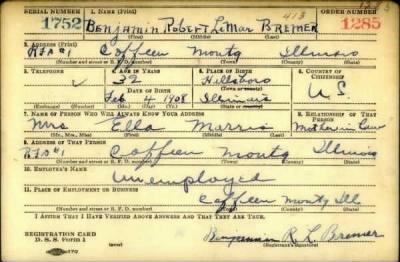 SERIAL NUMBER 1. NAME (Print) ORDER NUMBER
1752 BENJAMIN ROBERT LEMAR BREMER 1285
(First) (Middle) (Last)
2. ADDRESS (Print)
RFD#1 Coffeen Montg Illinois
(Number and street or R. F. D. number) (Town) (County) (State)
3. TELEPHONE 4. AGE IN YEARS 5. PLACE OF BIRTH 6. COUNTRY OF CITIZENSHIP
32 Hillsboro
DATE OF BIRTH (Town or county) U.S.
Feb 4 1908 Illinois
(Exchange) (Number) (Mo.) (Day) (Yr.) (State or country)
7. NAME OF PERSON WHO WILL ALWAYS KNOW YOUR ADDRESS 8. RELATIONSHIP OF THAT PERSON
Mrs Ella Morris Mother in Law
(Mr., Mrs., Miss) (First) (Middle) (Last)
9. ADDRESS OF THAT PERSON
RFD#1 Coffeen Montg Illinois
(Number and street or R. F. D. number) (Town) (County) (State)
10. EMPLOYER'S NAME
Unemployed
11. PLACE OF EMPLOYMENT OR BUSINESS
Coffeen Montg Ill
(Number and street or R. F. D. number) (Town) (County) (State)
I AFFIRM THAT I HAVE VERIFIED ABOVE ANSWERS AND THAT THEY ARE TRUE.
REGISTRATION CARD
D. S. S. Form 1 Benjamin R. L. Bremer
(Registrant's signature)